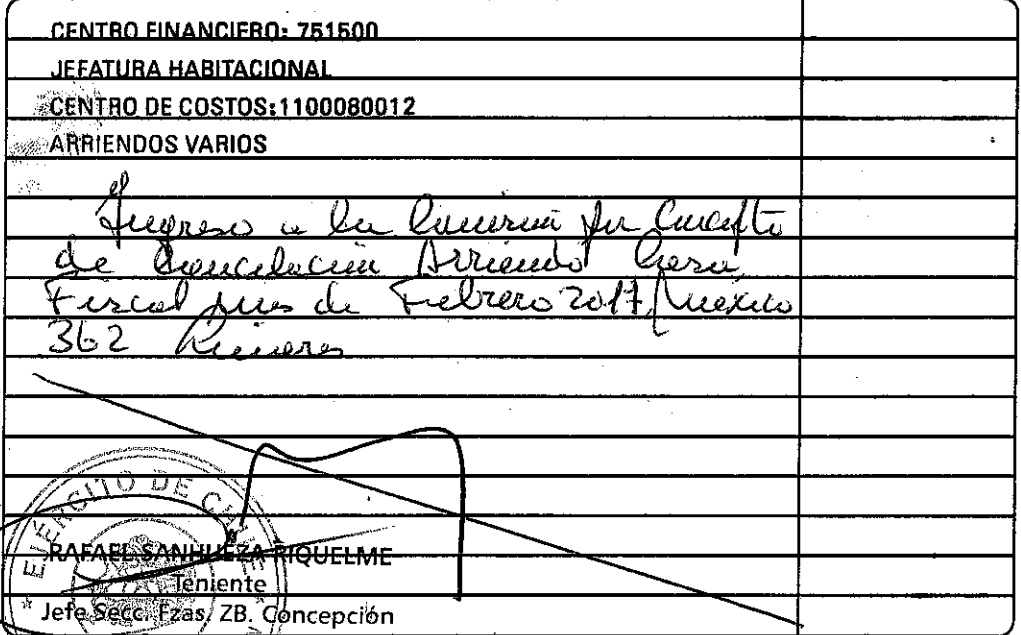 CENTRO FINANCIERO: 751500
JEFATURA HABITACIONAL
CENTRO DE COSTOS:1100080012
ARRIENDOS VARIOS
Ingreso a la por Concepto
de Cancelación Arriendo Casa
Fiscal mes de Febrero 2017, Mexico
362 Linares
EJÉRCITO DE CHILE
RAFAEL SANHUEZA RIQUELME
Teniente
Jefe Secc. Fzas. ZB. Concepción